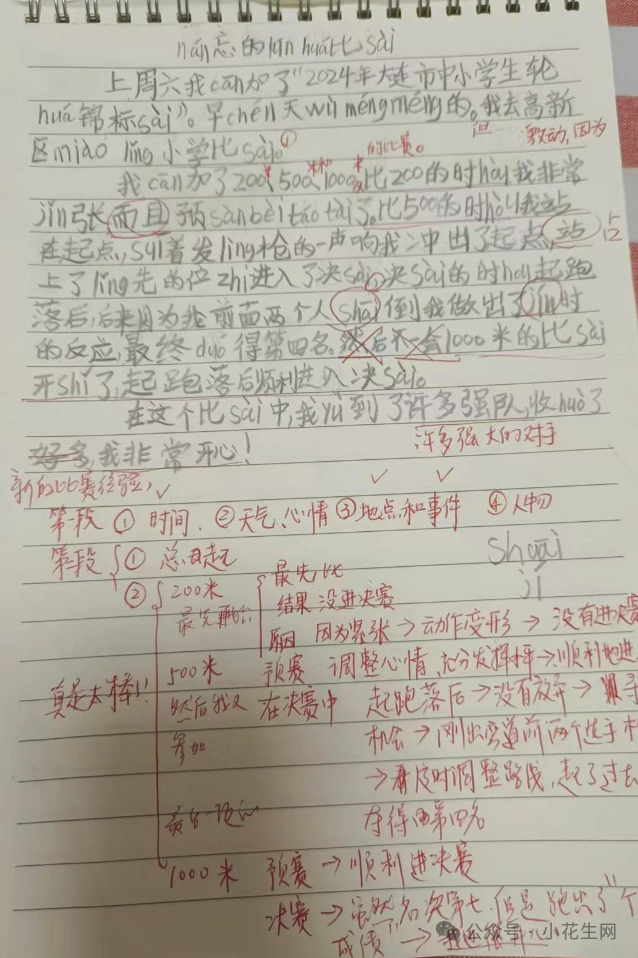 nán忘的lún huá比sài
上周六我cān加了"2024年大连市中小学生轮
huá锦标sài"。早chén天wù méngméng的。我去高新
但 激动,因为
区miào lǐng小学比sài。①
的比赛。
我cān加了200米、500米和1000米 比200的时hòu我非常
jǐn张而且预sài bèi táo tài了。比500的时hòu我站
在起点,suí着发lìng枪的一声响我冲出了起点,站
上了lǐng先的位zhi进入了决sài。决sài的时hou起跑
落后,后来因为我前面两个人shāi倒我做出了jín时
的反应,最终duó得第四名。然后不一会1000米的比sài
开shǐ了,起跑落后顺利进入决sài。
在这个比sài中,我yù到了许多强队,收huò了
好多,我非常开心!
许多强大的对手
新的比赛经验,
第一段 ① 时间、②天气、心情 ③地点和事件 ④人物
第二段 ① 总日起
shuāi
jí
② 200米 最先比
结果 没进决赛
原因 因为紧张→动作变形→没有进决赛
真是太棒!!
500米 预赛 调整心情,充分发挥水平→顺利地进
然后我又 在决赛中 起跑落后→没有放弃→
参加 机会→刚出弯道前两个选手
→及时调整路线,超了过去
夺得第四名
1000米 预赛→顺利进决赛
决赛→虽然名次第七,但是跑出了"个
成绩→
公众号·小花生网